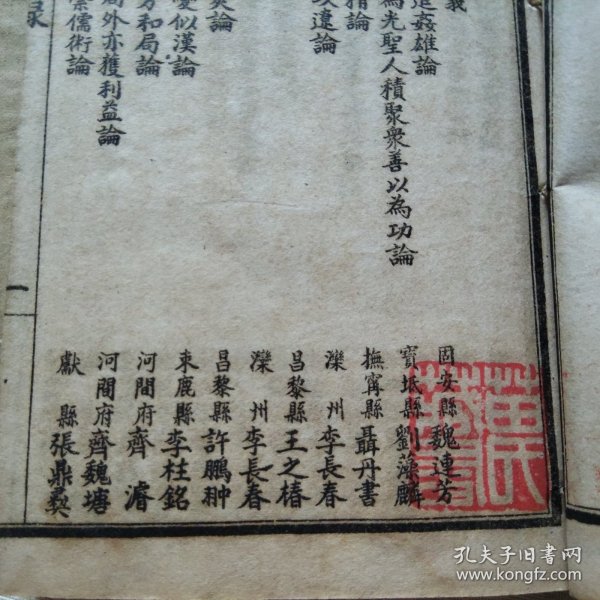 義
姦雄論
為光聖人積聚衆善以為功論
論
遠論
論
似漢論
和局論
局外亦獲利益論
儒術論
固安縣魏連芳
寶坻縣劉藻麟
撫甯縣聶丹書
灤州李長春
昌黎縣王之椿
灤州李長春
昌黎縣許鵬翀
束鹿縣李柱銘
河間府齊濬
河間府齊魏塘
獻縣張鼎彝
一
孔夫子旧书网
www.kongfz.com